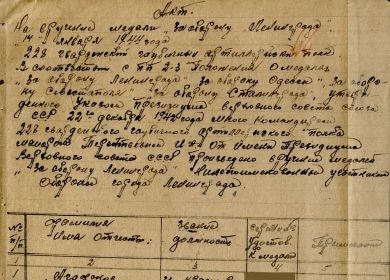 Акт.
На вручение медали "За оборону Ленинграда"
января 1944 года
228 гвардейский гаубичный артиллерийский полк
В соответствии пп 2-3 Положения о медалях
"За оборону Ленинграда" "За оборону Одессы" "За оборо-
ну Севастополя" "За оборону Сталинграда", утверж-
денного Указом Президиума Верховного совета союза
ССР 22го декабря 1942 года мною командиром
228 гвардейского гаубичного артиллерийского полка
майором от имени Президиума
Верховного совета СССР произведено вручение медалей
"За оборону Ленинграда" участникам
Обороны города Ленинграда.
№ п/п Фамилия Имя Отчество: Звание должность Удостов. к медали Примечание
1 2 3